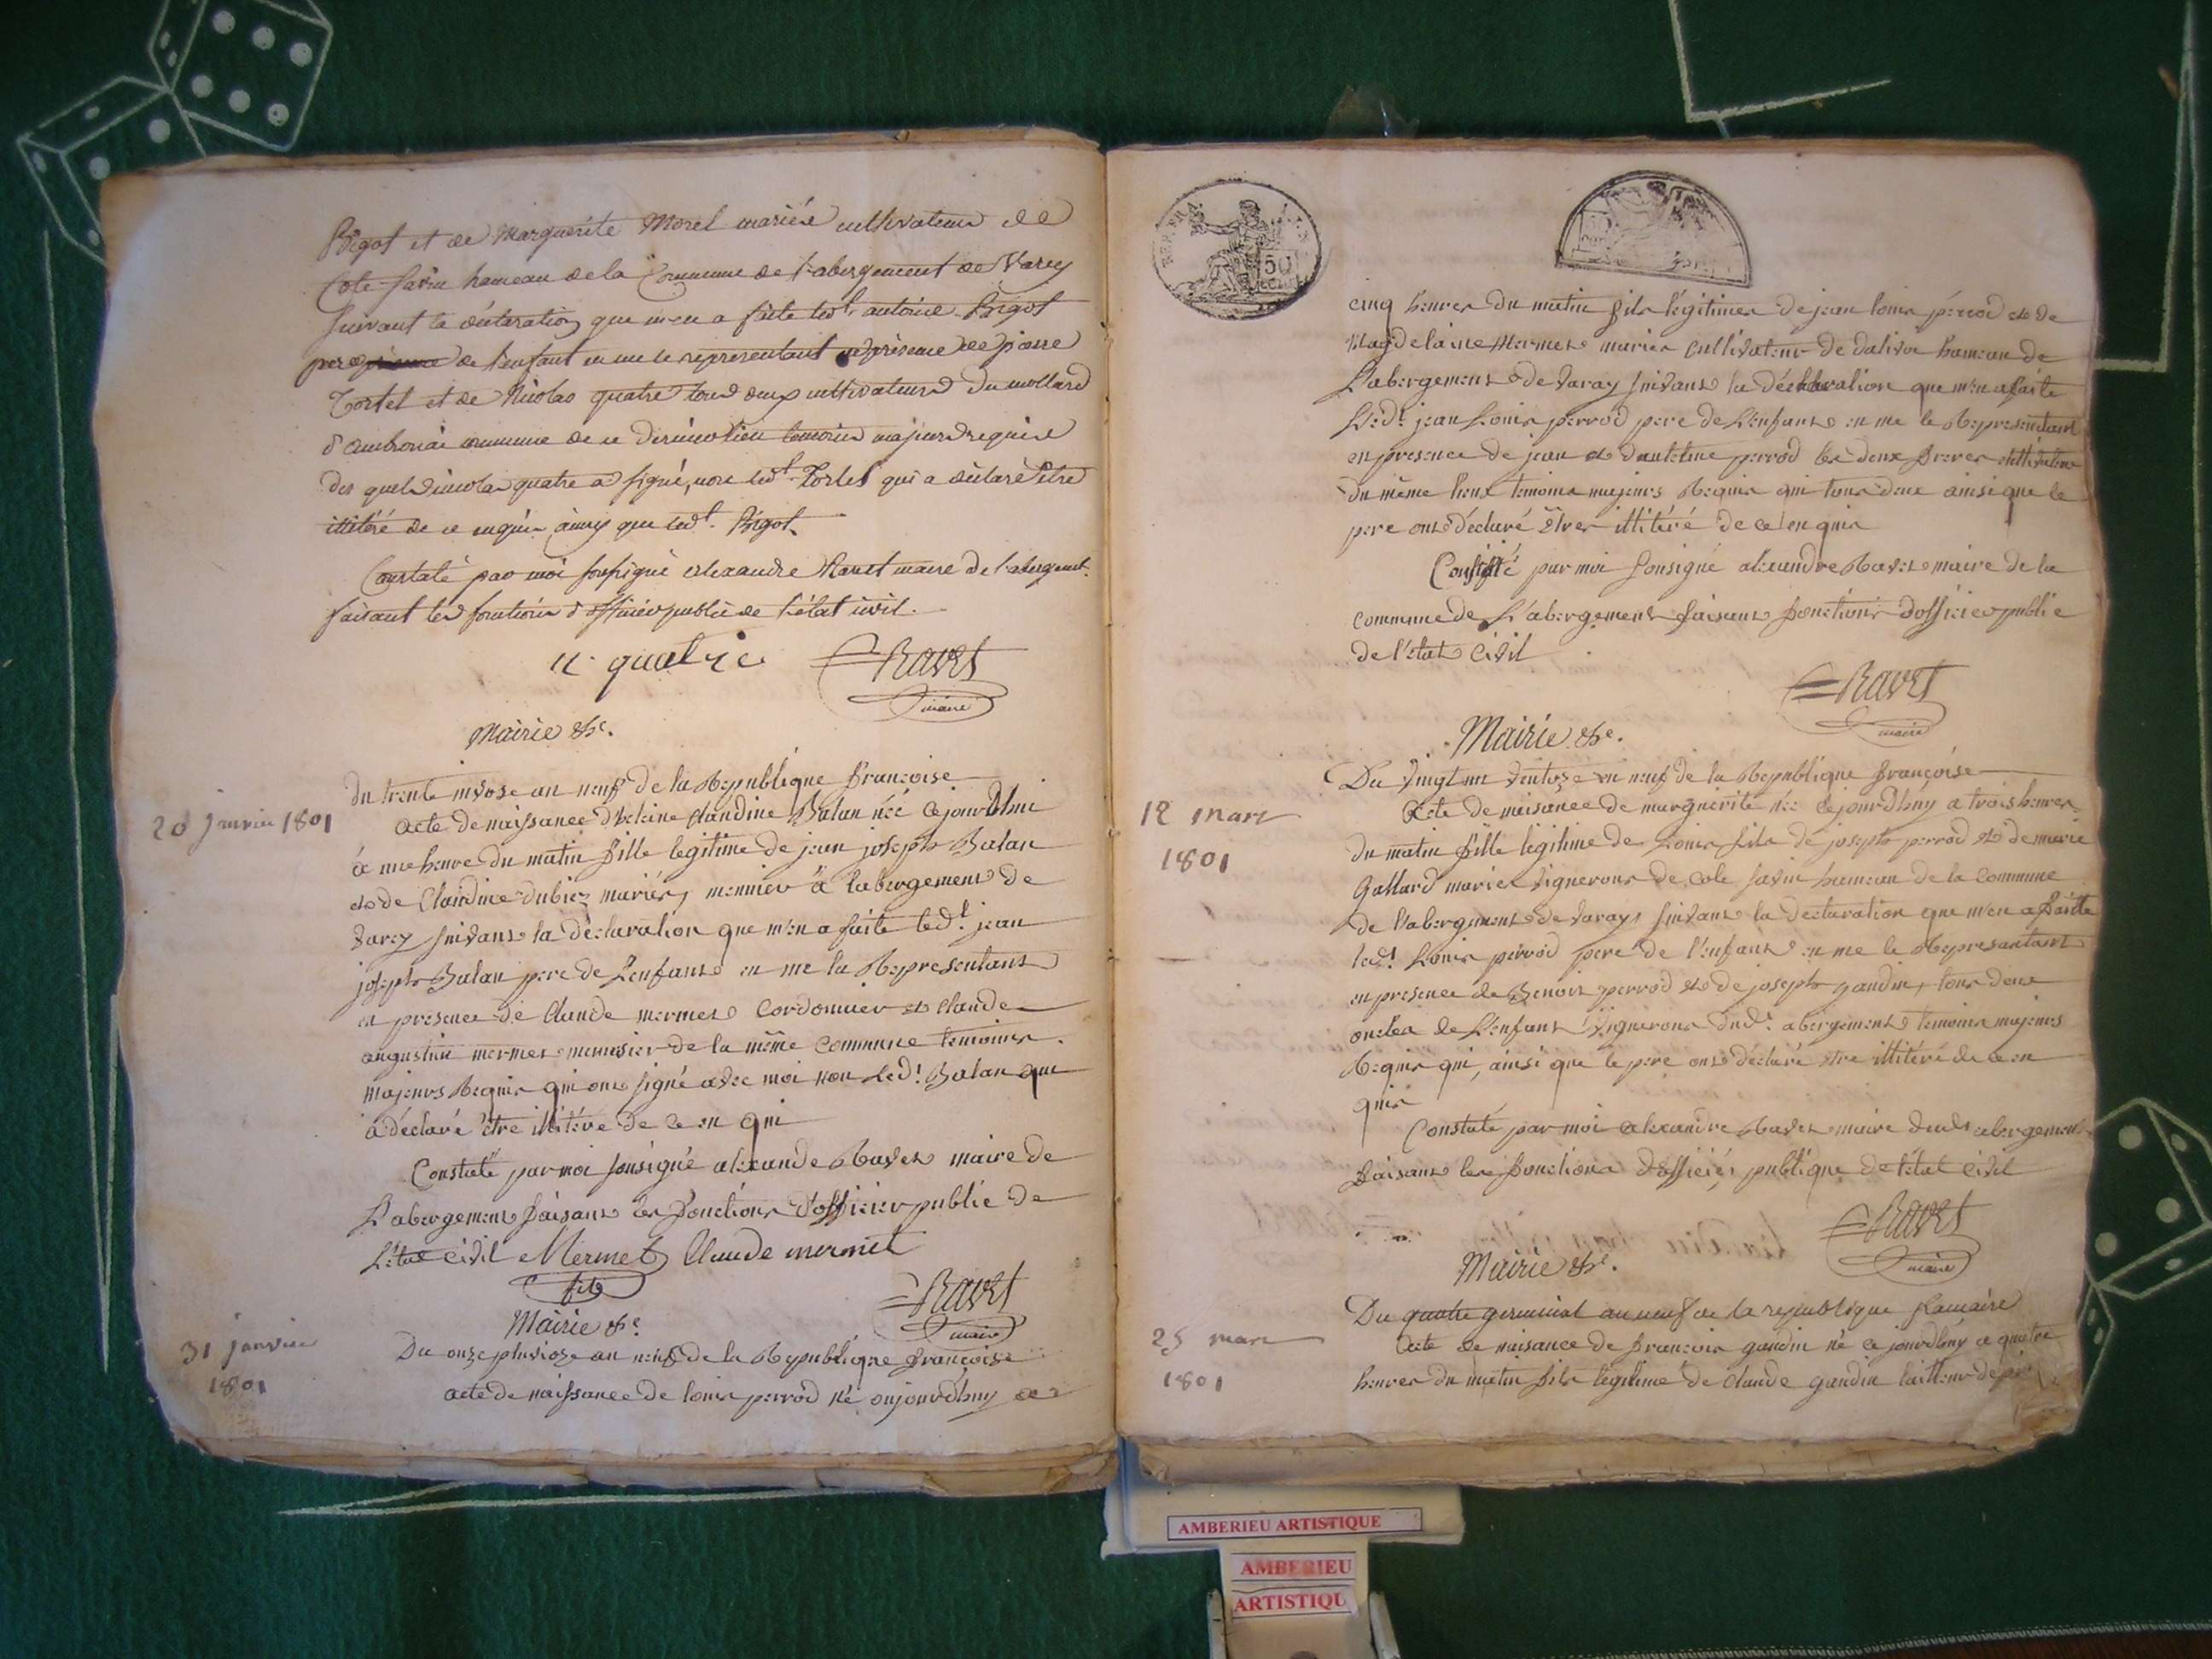 Bigot et de Marguerite Morel mariés cultivateurs de
Cote Savin hameau de la Commune de l'abergement de Varey
suivant la déclaration que m'en a faite led.t antoine Bigot
pere de l'enfant en me le representant en présence de pierre
Tortel et de Nicolas quatre tous deux cultivateurs du mollard
d'ambronai commune de ce dernier lieu temoins majeurs requis
des quels nicolas quatre a signé, non led.t Tortel qui a déclaré être
illitéré de ce enquis ainsy que led.t Bigot
Constaté par moi soussigné alexandre Ravet maire de l'abergement
faisant les fonctions d'officier public de l'état civil.
n. quatre Ravet
maire
Mairie &c.
20 janvier 1801
du trente nivose an neuf de la République françoise
acte de naissance d' claudine Balan née cejourdhui
à une heure du matin fille legitime de jean joseph Balan
et de Claudine dubiez mariés, mennier à labergement de
varey suivant la déclaration que m'en a faite led.t jean
joseph Balan pere de L'enfant en me la Representant
en presence de Claude mermet Cordonnier et Claude
augustin mermet menusier de la même commune temoins
majeurs Requis qui ont signé avec moi non led.t Balan qui
a déclaré être illitére de ce en qui
Constaté par moi sousigné alexande Ravet maire de
L'abergement faisant les fonctions d'officier public de
L'état civil Mermet Claude mermet
fils Ravet
maire
Mairie &c.
31 janvier
1801
Du onze pluvioze an neuf de la République françoise
acte de naissance de louis perrod né aujourdhuy a
REP. FRA.
50
cinq heures du matin fils légitimes de jean louis pérrod et de
Magdelaine Mermet mariés Cultivateur de dalivoi hameau de
L'abergement de varay suivant la déclaration que m'en a faite
Led.t jean Louis perrod pere de L'enfant en me le Representant
en presence de jean et d'antelme perrod les deux freres cultivateur
du même lieux temoins majeurs Requis qui tous deux ainsi que le
pere ont déclaré êtres illitéré de ce en quis
Constaté par moi sousigné alexandre Ravet maire de la
commune de L'abergement faisant fonctions d'officier public
de l'état Civil
Ravet
maire
Mairie &c.
12 mars
1801
Du vingt un ventoze an neuf de la République françoise
Acte de naisance de marguerite née cejourdhuy a trois heures
du matin fille legitime de Louis fils de joseph perrod et de marie
Gallard mariés vignerons de cote savin hameau de la Commune
de l'abergement de varay, suivant la declaration que m'en a faitte
led.t Louis perrod pere de l'enfant en me la Represantant
en presence de Benoit perrod et de joseph gaudin, tous deux
oncles de L'enfant vignerons dud.t abergement temoins majeurs
Requis qui, ainsi que le pere ont déclaré etre illitéré de ce en
quis
Constaté par moi alexandre Ravet maire dudt abergement
faisant les fonctions d'officiér publique de l'état Civil
Ravet
maire
Mairie &c.
25 mars
1801
Du quatre germinal an neuf de la republique
Acte de naisance de francois gaudin né ce jourdhuy a quatre
heures du matin fils légitime de Claude gaudin
AMBERIEU ARTISTIQUE
AMBERIEU
ARTISTIQU